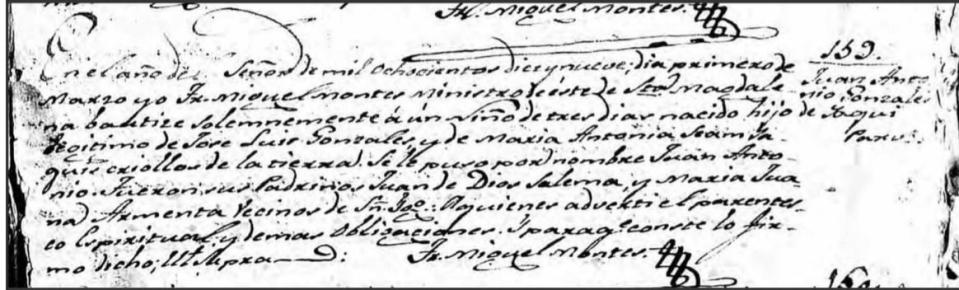 Fr. Miguel Montes.
En el año del Señor de mil ochocientos diez y nueve, dia primero de
Marzo yo Fr. Miguel Montes Ministro de éste de Sta Magdale-
na bautizé solemnemente á un Niño de tres dias nacido hijo
legitimo de Jose Luis Gonzales, y de Maria Antonia
criollos de la tierra. Se le puso por nombre Juan Anto-
nio. Fueron sus Padrinos Juan de Dios Salerna, y Maria Jua-
na Armenta Vecinos de Sn. á quienes adverti el parentes-
co Espiritual, y demas obligaciones. Y para qe conste lo fir-
mo dicho, Ut Supra
Fr. Miguel Montes.
159.
Juan Anto
nio Gonzales
de Yaqui